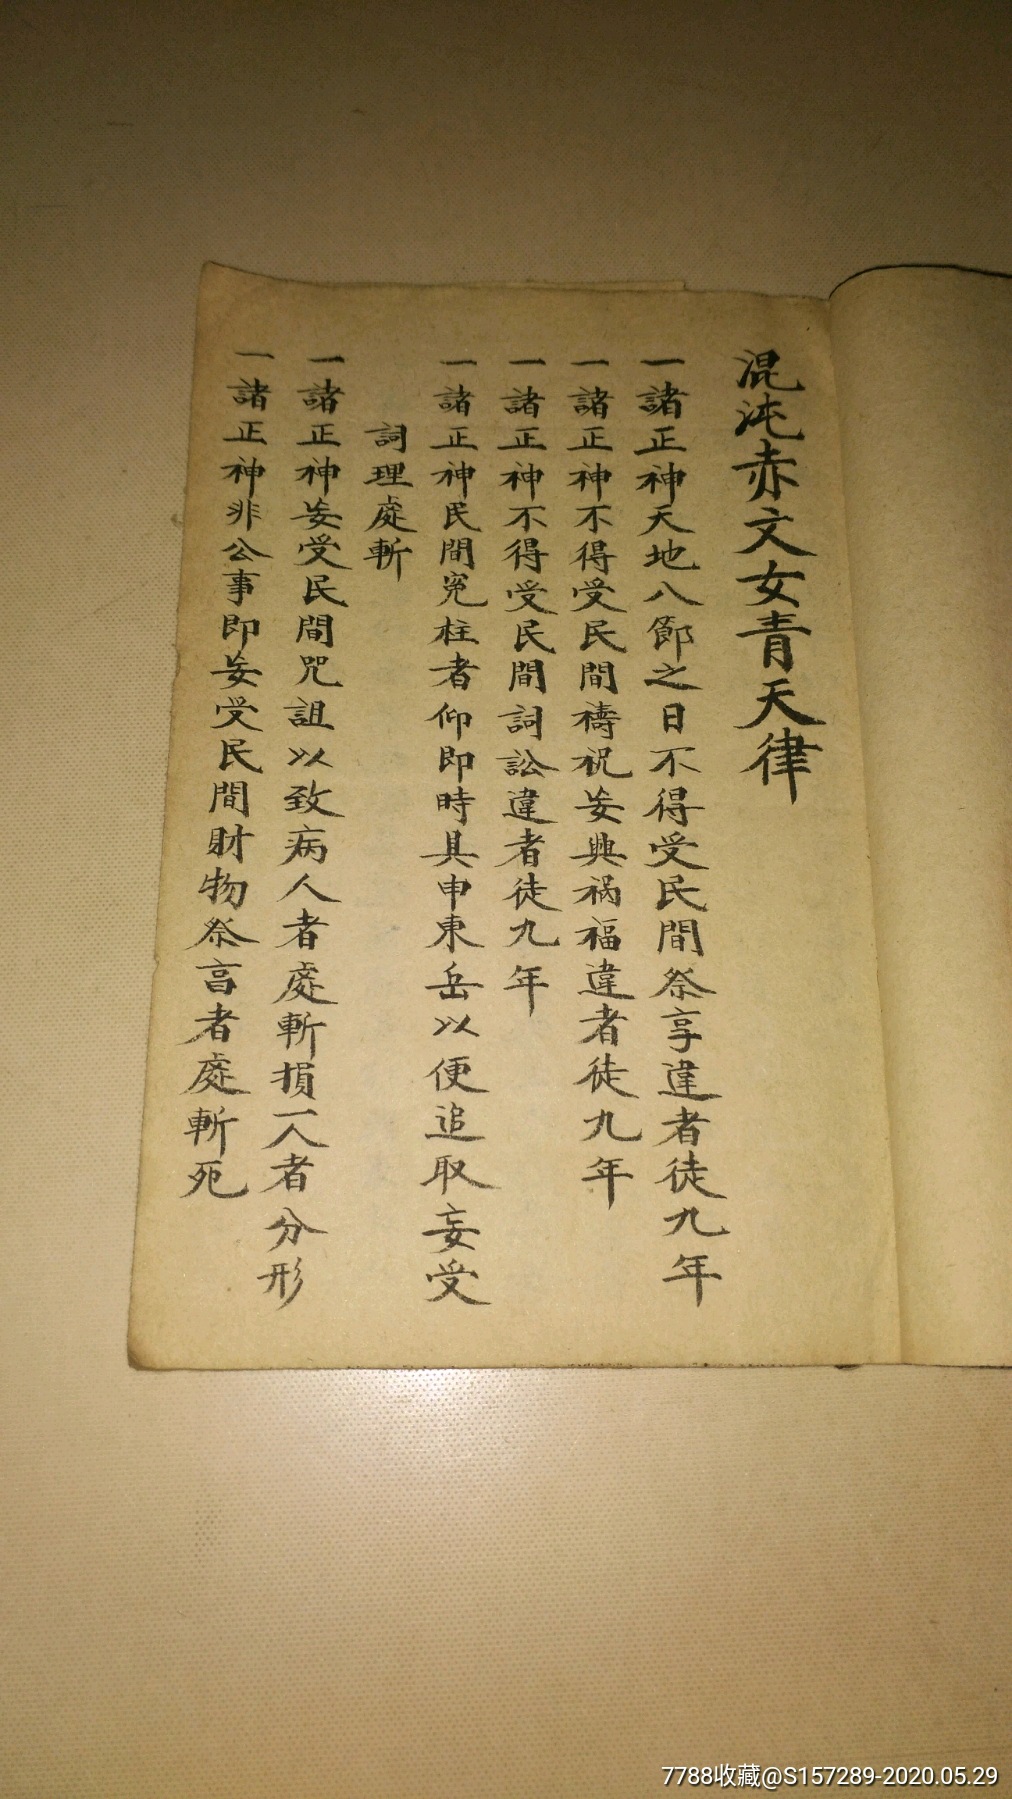 混沌赤文女青天律
一諸正神天地八節之日不得受民間祭享違者徒九年
一諸正神不得受民間禱祝妄興禍福違者徒九年
一諸正神不得受民間詞訟違者徒九年
一諸正神民間冤枉者仰即時具申東岳以便追取妄受
詞理處斬
一諸正神妄受民間咒詛以致病人者處斬損一人者分形
一諸正神非公事即妄受民間財物祭享者處斬死
7788收藏@S157289-2020.05.29